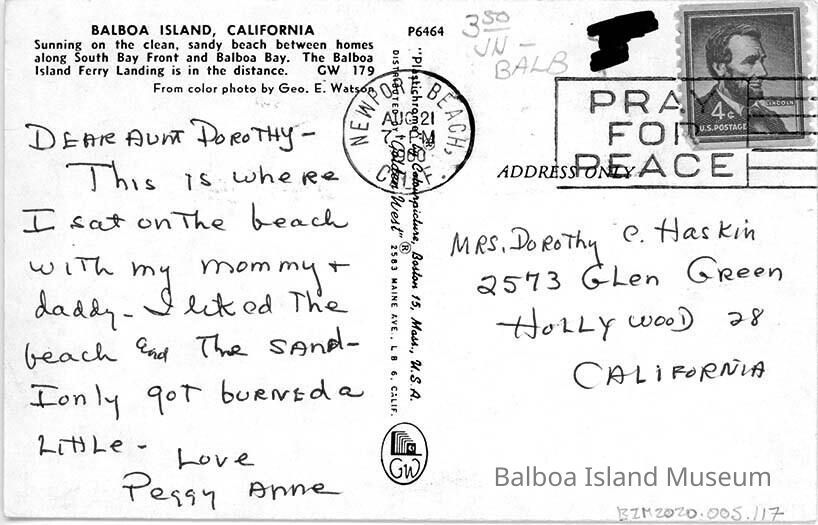 BALBOA ISLAND, CALIFORNIA
Sunning on the clean, sandy beach between homes
along South Bay Front and Balboa Bay. The Balboa
Island Ferry Landing is in the distance. GW 179
From color photo by Geo. E. Watson
P6464
DEAR AUNT DOROTHY-
This is where
I sat on the beach
with my mommy +
daddy- I liked the
beach and the sand-
I only got burned a
little-
Love
Peggy Anne
"Plastichrome" by Colourpicture, Boston 15, Mass., U.S.A.
DISTRIBUTED BY "Golden West" ® 2583 MAINE AVE., L B 6, CALIF.
GW
3 50
JN -
BALB
NEWPORT BEACH,
AUG 21
PM
CALIF.
PRAY
FOR
PEACE
LINCOLN
4¢
U.S. POSTAGE
ADDRESS ONLY
MRS. Dorothy C. Haskin
2573 Glen Green
Hollywood 28
CALIFORNIA
Balboa Island Museum
BIM2020.005.117